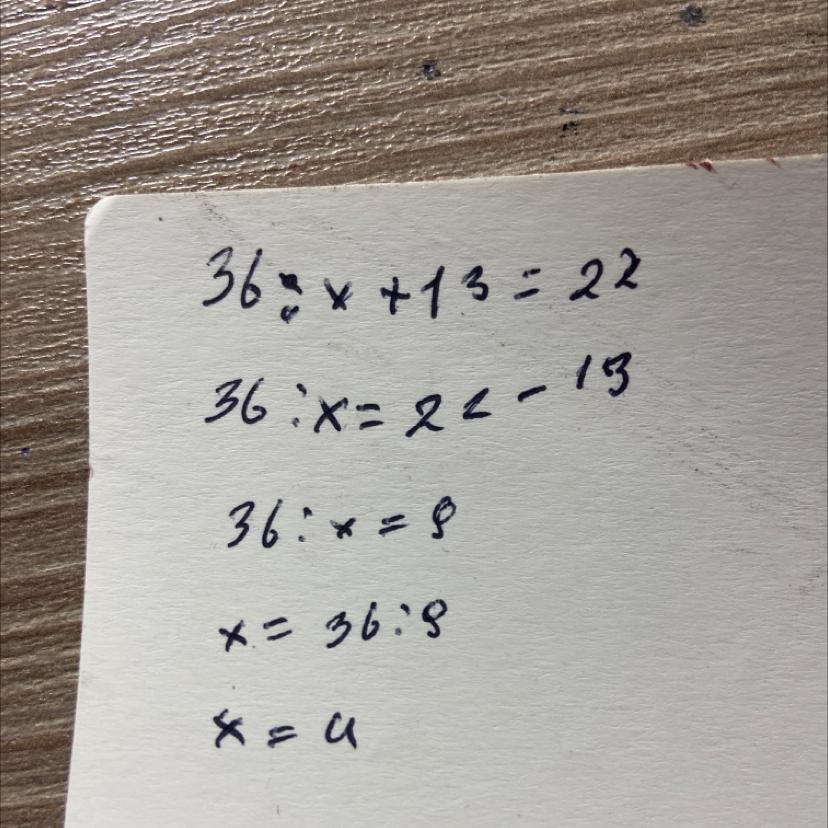 36:x+13=22
36:x=22-13
36:x=9
x=36:9
x=4